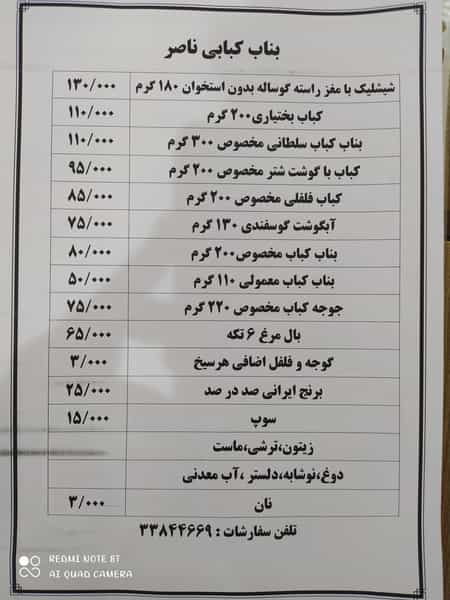 بناب کبابی ناصر
شیشلیک با مغز راسته گوساله بدون استخوان ۱۸۰ گرم ۱۳۰/۰۰۰
کباب بختیاری۲۰۰ گرم ۱۱۰/۰۰۰
بناب کباب سلطانی مخصوص ۳۰۰ گرم ۱۱۰/۰۰۰
کباب با گوشت شتر مخصوص ۲۰۰ گرم ۹۵/۰۰۰
کباب فلفلی مخصوص ۲۰۰ گرم ۸۵/۰۰۰
آبگوشت گوسفندی ۱۳۰ گرم ۷۵/۰۰۰
بناب کباب مخصوص۲۰۰ گرم ۸۰/۰۰۰
بناب کباب معمولی ۱۱۰ گرم ۵۰/۰۰۰
جوجه کباب مخصوص ۲۲۰ گرم ۷۵/۰۰۰
بال مرغ ۶ تکه ۶۵/۰۰۰
گوجه و فلفل اضافی هرسیخ ۳/۰۰۰
برنج ایرانی صد در صد ۲۵/۰۰۰
سوپ ۱۵/۰۰۰
زیتون،ترشی،ماست
دوغ،نوشابه،دلستر ،آب معدنی
نان ۳/۰۰۰
تلفن سفارشات : ۳۳۸۴۴۶۶۹
REDMI NOTE 8T
AI QUAD CAMERA